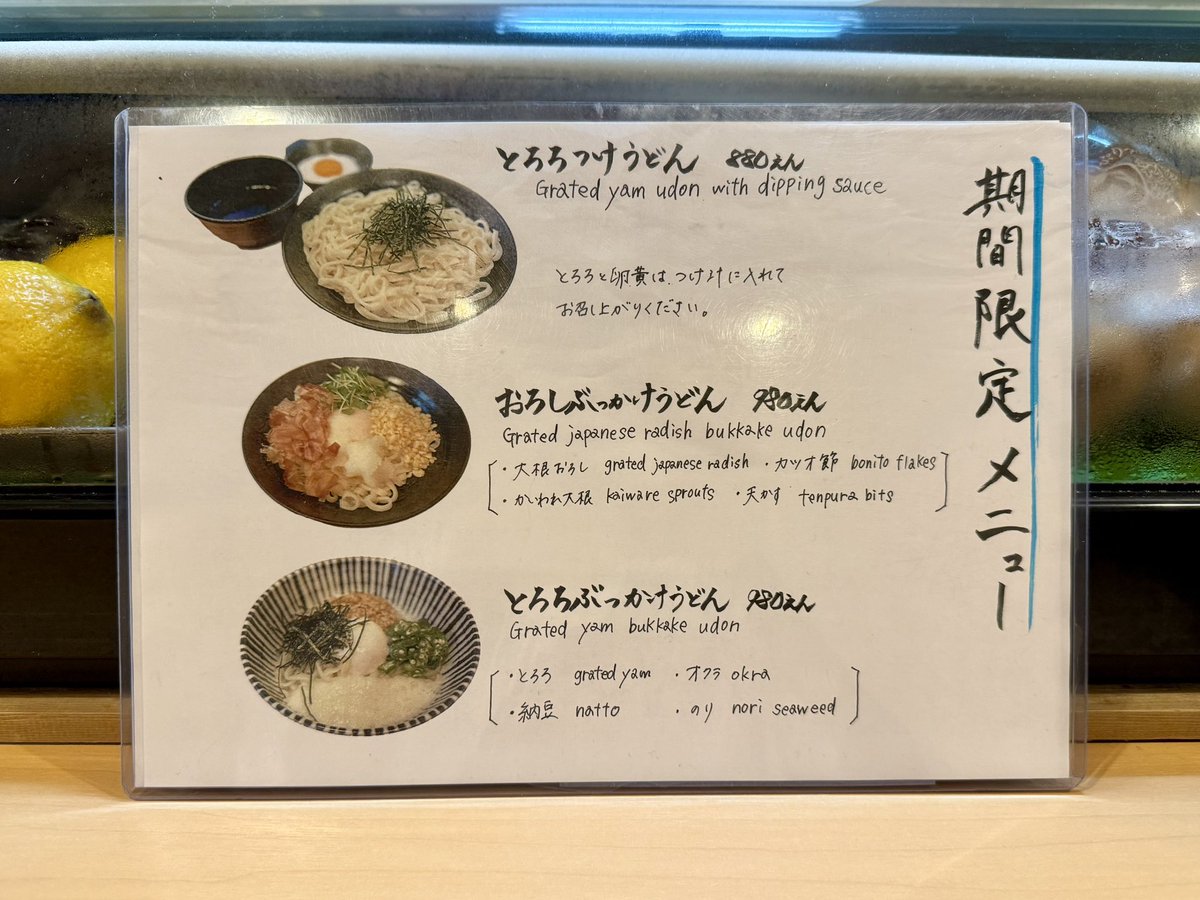 期間限定メニュー
とろろつけうどん 880えん
Grated yam udon with dipping sauce
とろろと卵黄は、つけ汁に入れて
お召し上がりください。
おろしぶっかけうどん 980えん
Grated japanese radish bukkake udon
・大根おろし grated japanese radish ・カツオ節 bonito flakes
・かいわれ大根 kaiware sprouts ・天かす tenpura bits
とろろぶっかけうどん 980えん
Grated yam bukkake udon
・とろろ grated yam ・オクラ okra
・納豆 natto ・のり nori seaweed